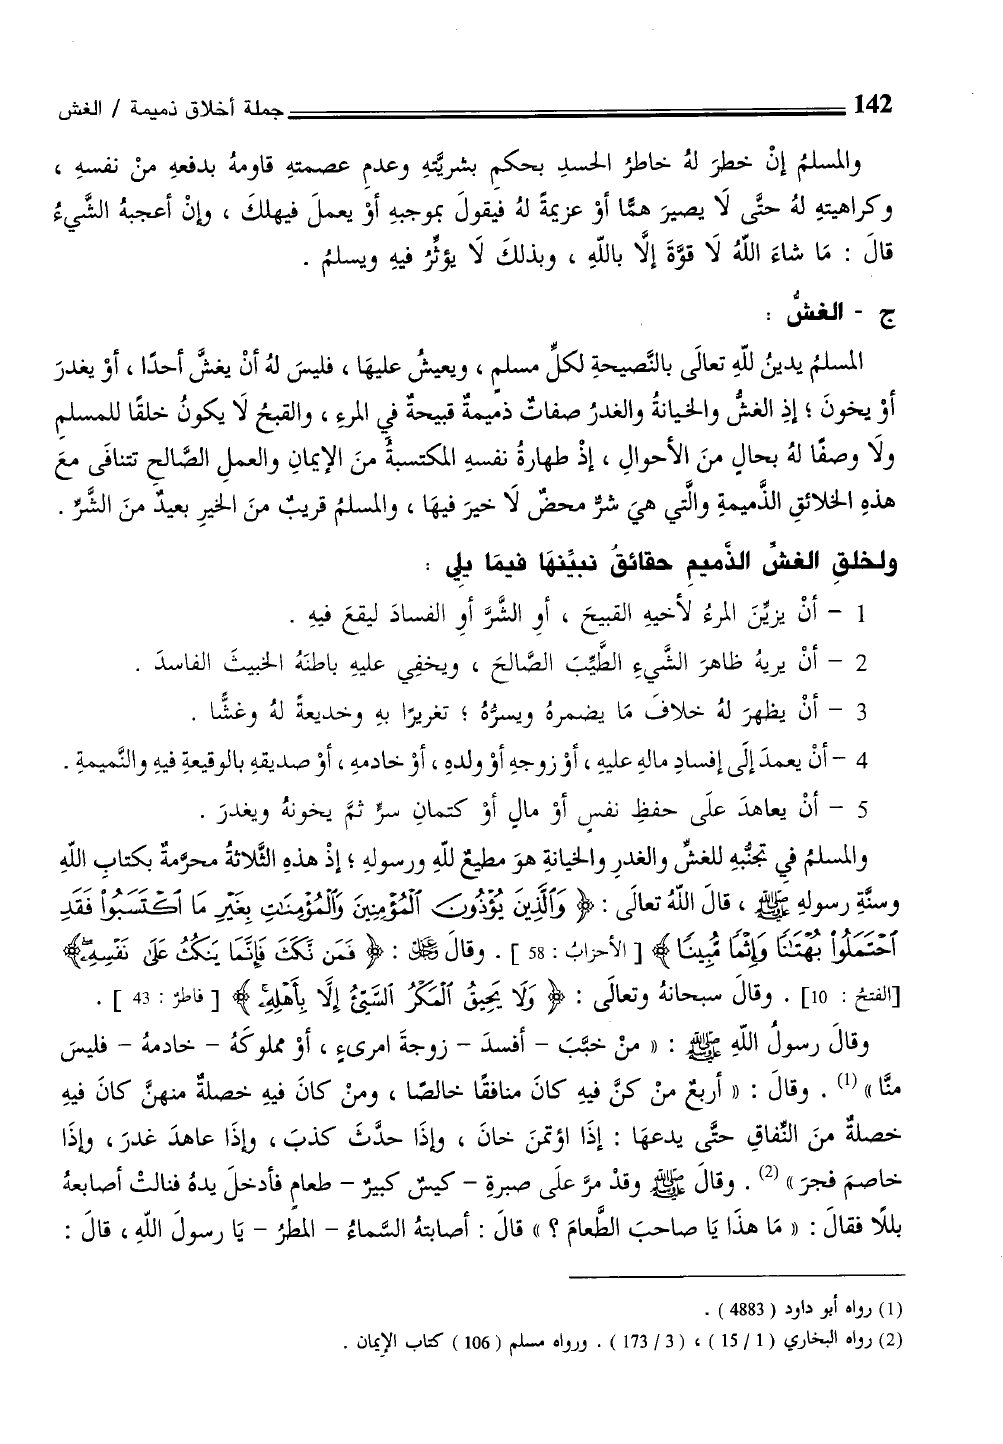 142 جملة أخلاق ذميمة / الغش
والمسلمُ إنْ خطرَ لهُ خاطرُ الحسدِ بحكمِ بشريَّتهِ وعدمِ عصمتهِ قاومهُ بدفعهِ منْ نفسهِ ،
وكراهيتهِ لهُ حتَّى لَا يصيرَ همًّا أوْ عزيمةً لهُ فيقولَ بموجبهِ أوْ يعملَ فيهلكَ ، وإنْ أعجبهُ الشَّيءُ
قالَ : مَا شاءَ اللّهُ لَا قوَّةَ إلَّا باللّهِ ، وبذلكَ لَا يؤثِّرُ فيهِ ويسلمُ .
ج - الغشُّ :
المسلمُ يدينُ للّهِ تعالَى بالنَّصيحةِ لكلِّ مسلمٍ ، ويعيشُ عليهَا ، فليسَ لهُ أنْ يغشَّ أحدًا ، أوْ يغدرَ
أوْ يخونَ ؛ إذِ الغشُّ والخيانةُ والغدرُ صفاتٌ ذميمةٌ قبيحةٌ في المرءِ ، والقبحُ لَا يكونُ خلقًا للمسلمِ
ولَا وصفًا لهُ بحالٍ منَ الأحوالِ ، إذْ طهارةُ نفسهِ المكتسبةُ منَ الإيمانِ والعملِ الصَّالحِ تتنافَى معَ
هذهِ الخلائقِ الذَّميمةِ والَّتي هيَ شرٌّ محضٌ لَا خيرَ فيهَا ، والمسلمُ قريبٌ منَ الخيرِ بعيدٌ منَ الشَّرِّ .
ولخلقِ الغشِّ الذَّميمِ حقائقُ نبيِّنهَا فيمَا يلِي :
1 - أنْ يزيِّنَ المرءُ لأخيهِ القبيحَ ، أوِ الشَّرَّ أوِ الفسادَ ليقعَ فيهِ .
2 - أنْ يريهُ ظاهرَ الشَّيءِ الطَّيِّبَ الصَّالحَ ، ويخفِي عليهِ باطنَهُ الخبيثَ الفاسدَ .
3 - أنْ يظهرَ لهُ خلافَ مَا يضمرهُ ويسرُّهُ ؛ تغريرًا بهِ وخديعةً لهُ وغشًّا .
4 - أنْ يعمدَ إلَى إفسادِ مالهِ عليهِ ، أوْ زوجهِ أوْ ولدهِ ، أوْ خادمهِ ، أوْ صديقهِ بالوقيعةِ فيهِ والنَّميمةِ .
5 - أنْ يعاهدَ علَى حفظِ نفسٍ أوْ مالٍ أوْ كتمانِ سرٍّ ثمَّ يخونهُ ويغدرَ .
والمسلمُ في تجنُّبهِ للغشِّ والغدرِ والخيانةِ هوَ مطيعٌ للّهِ ورسولهِ ؛ إذْ هذهِ الثَّلاثةُ محرَّمةٌ بكتابِ اللّهِ
وسنَّةِ رسولهِ ﷺ ، قالَ اللّهُ تعالَى : ﴿ وَٱلَّذِينَ يُؤْذُونَ ٱلْمُؤْمِنِينَ وَٱلْمُؤْمِنَٰتِ بِغَيْرِ مَا ٱكْتَسَبُوا۟ فَقَدِ
ٱحْتَمَلُوا۟ بُهْتَٰنًا وَإِثْمًا مُّبِينًا ﴾ [ الأحزابُ : 58 ] . وقالَ ﷻ : ﴿ فَمَن نَّكَثَ فَإِنَّمَا يَنكُثُ عَلَىٰ نَفْسِهِۦ ﴾
[الفتحُ : 10] . وقالَ سبحانهُ وتعالَى : ﴿ وَلَا يَحِيقُ ٱلْمَكْرُ ٱلسَّيِّئُ إِلَّا بِأَهْلِهِۦ ﴾ [ فاطرٌ : 43 ] .
وقالَ رسولُ اللّهِ ﷺ : « منْ خبَّبَ - أفسدَ - زوجةَ امرىءٍ ، أوْ مملوكَهُ - خادمهُ - فليسَ
منَّا » (1) . وقالَ : « أربعٌ منْ كنَّ فيهِ كانَ منافقًا خالصًا ، ومنْ كانَ فيهِ خصلةٌ منهنَّ كانَ فيهِ
خصلةٌ منَ النِّفاقِ حتَّى يدعهَا : إذَا اؤتمنَ خانَ ، وإذَا حدَّثَ كذبَ ، وإذَا عاهدَ غدرَ ، وإذَا
خاصمَ فجرَ » (2) . وقالَ ﷺ وقدْ مرَّ علَى صبرةِ - كيسٌ كبيرٌ - طعامٍ فأدخلَ يدهُ فنالتْ أصابعهُ
بللًا فقالَ : « مَا هذَا يَا صاحبَ الطَّعامِ ؟ » قالَ : أصابتهُ السَّماءُ - المطرُ - يَا رسولَ اللّهِ ، قالَ :
(1) رواه أبو داود ( 4883 ) .
(2) رواه البخاري ( 1 / 15 ) ، ( 3 / 173 ) . ورواه مسلم ( 106 ) كتاب الإيمان .